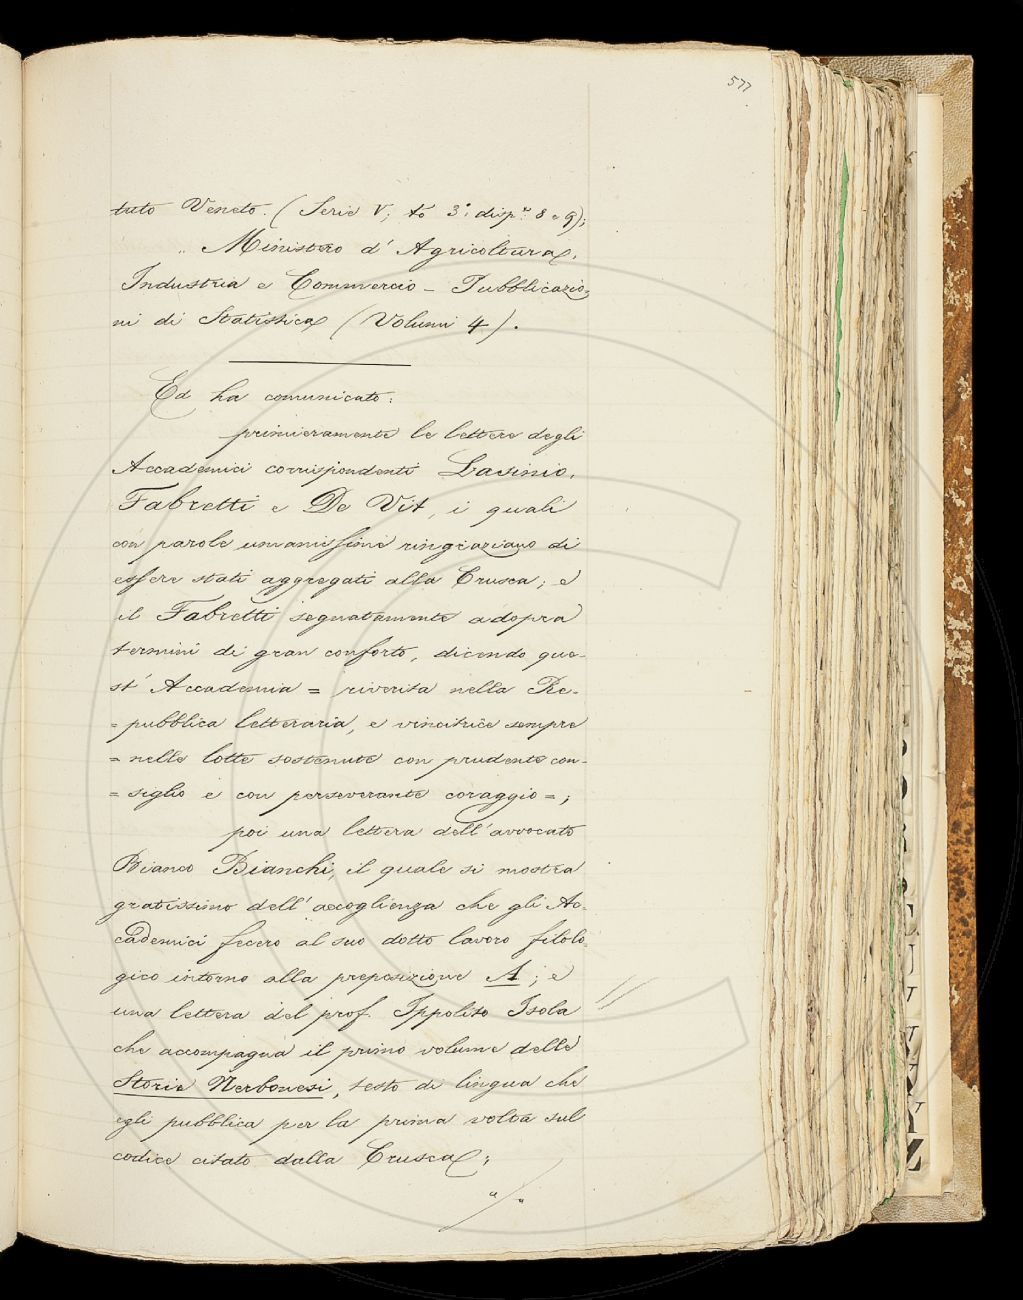 577
tuto Veneto. (Serie V, to 3°, disp.e 8 e 9);
„ Ministero d'Agricoltura,
Industria e Commercio - Pubblicazio-
ni di Statistica (Volumi 4).
Ed ha comunicato:
primieramente le lettere degli
Accademici corrispondenti Lasinio,
Fabretti e De Vit, i quali
con parole umanissime ringraziano di
essere stati aggregati alla Crusca; e
il Fabretti segnatamente adopra
termini di gran conforto, dicendo que-
st'Accademia = riverita nella Re-
= pubblica letteraria, e vincitrice sempre
= nelle lotte sostenute con prudente con-
= siglio e con perseverante coraggio =;
poi una lettera dell'avvocato
Bianco Bianchi, il quale si mostra
gratissimo dell'accoglienza che gli Ac-
cademici fecero al suo dotto lavoro filolo-
gico intorno alla preposizione A; e
una lettera del prof. Ippolito Isola
che accompagna il primo volume delle
Storie Nerbonesi, testo di lingua che
egli pubblica per la prima volta sul
codice citato dalla Crusca;